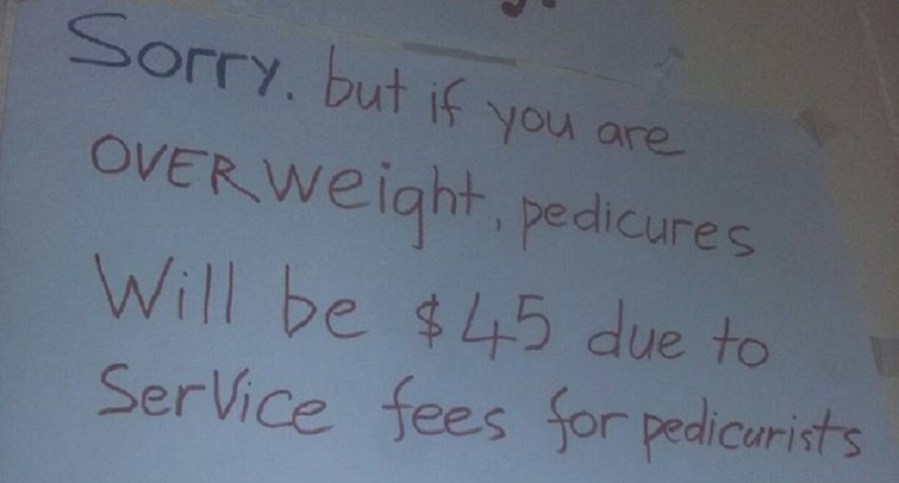 Sorry. but if you are
OVERWeight, pedicures
Will be $45 due to
Service fees for pedicurists